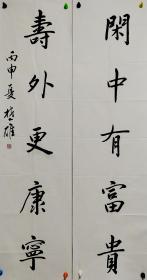 閑中有富貴
壽外更康寧
丙申夏